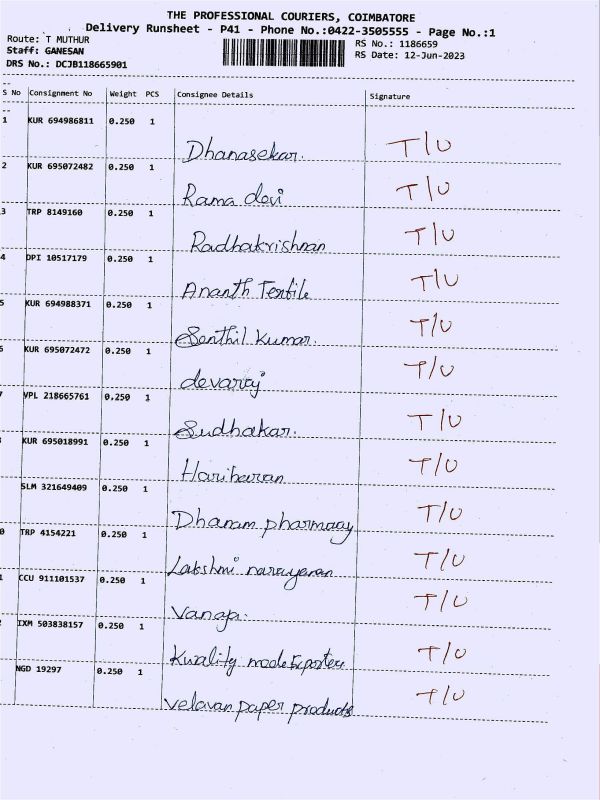 THE PROFESSIONAL COURIERS, COIMBATORE
Delivery Runsheet - P41 - Phone No.:0422-3505555 - Page No.:1
Route: T MUTHUR
Staff: GANESAN
DRS No.: DCJB118665901
RS No.: 1186659
RS Date: 12-Jun-2023
S No Consignment No Weight PCS Consignee Details Signature
1 KUR 694986811 0.250 1
Dhanasekar. T/U
2 KUR 695072482 0.250 1
Rama devi T/U
3 TRP 8149160 0.250 1
Radhakrishnan T/U
4 DPI 10517179 0.250 1
Ananth Textile T/U
5 KUR 694988371 0.250 1
Senthil Kumar. T/U
KUR 695072472 0.250 1
devaraj T/U
VPL 218665761 0.250 1
Sudhakar. T/U
KUR 695018991 0.250 1
Hariharan T/U
SLM 321649409 0.250 1
Dhanam pharmacy T/U
0 TRP 4154221 0.250 1
Lakshmi narayanan T/U
1 CCU 911101537 0.250 1
Vanaja. T/U
IXM 503838157 0.250 1
Kwality T/U
NGD 19297 0.250 1
velavan paper products T/U